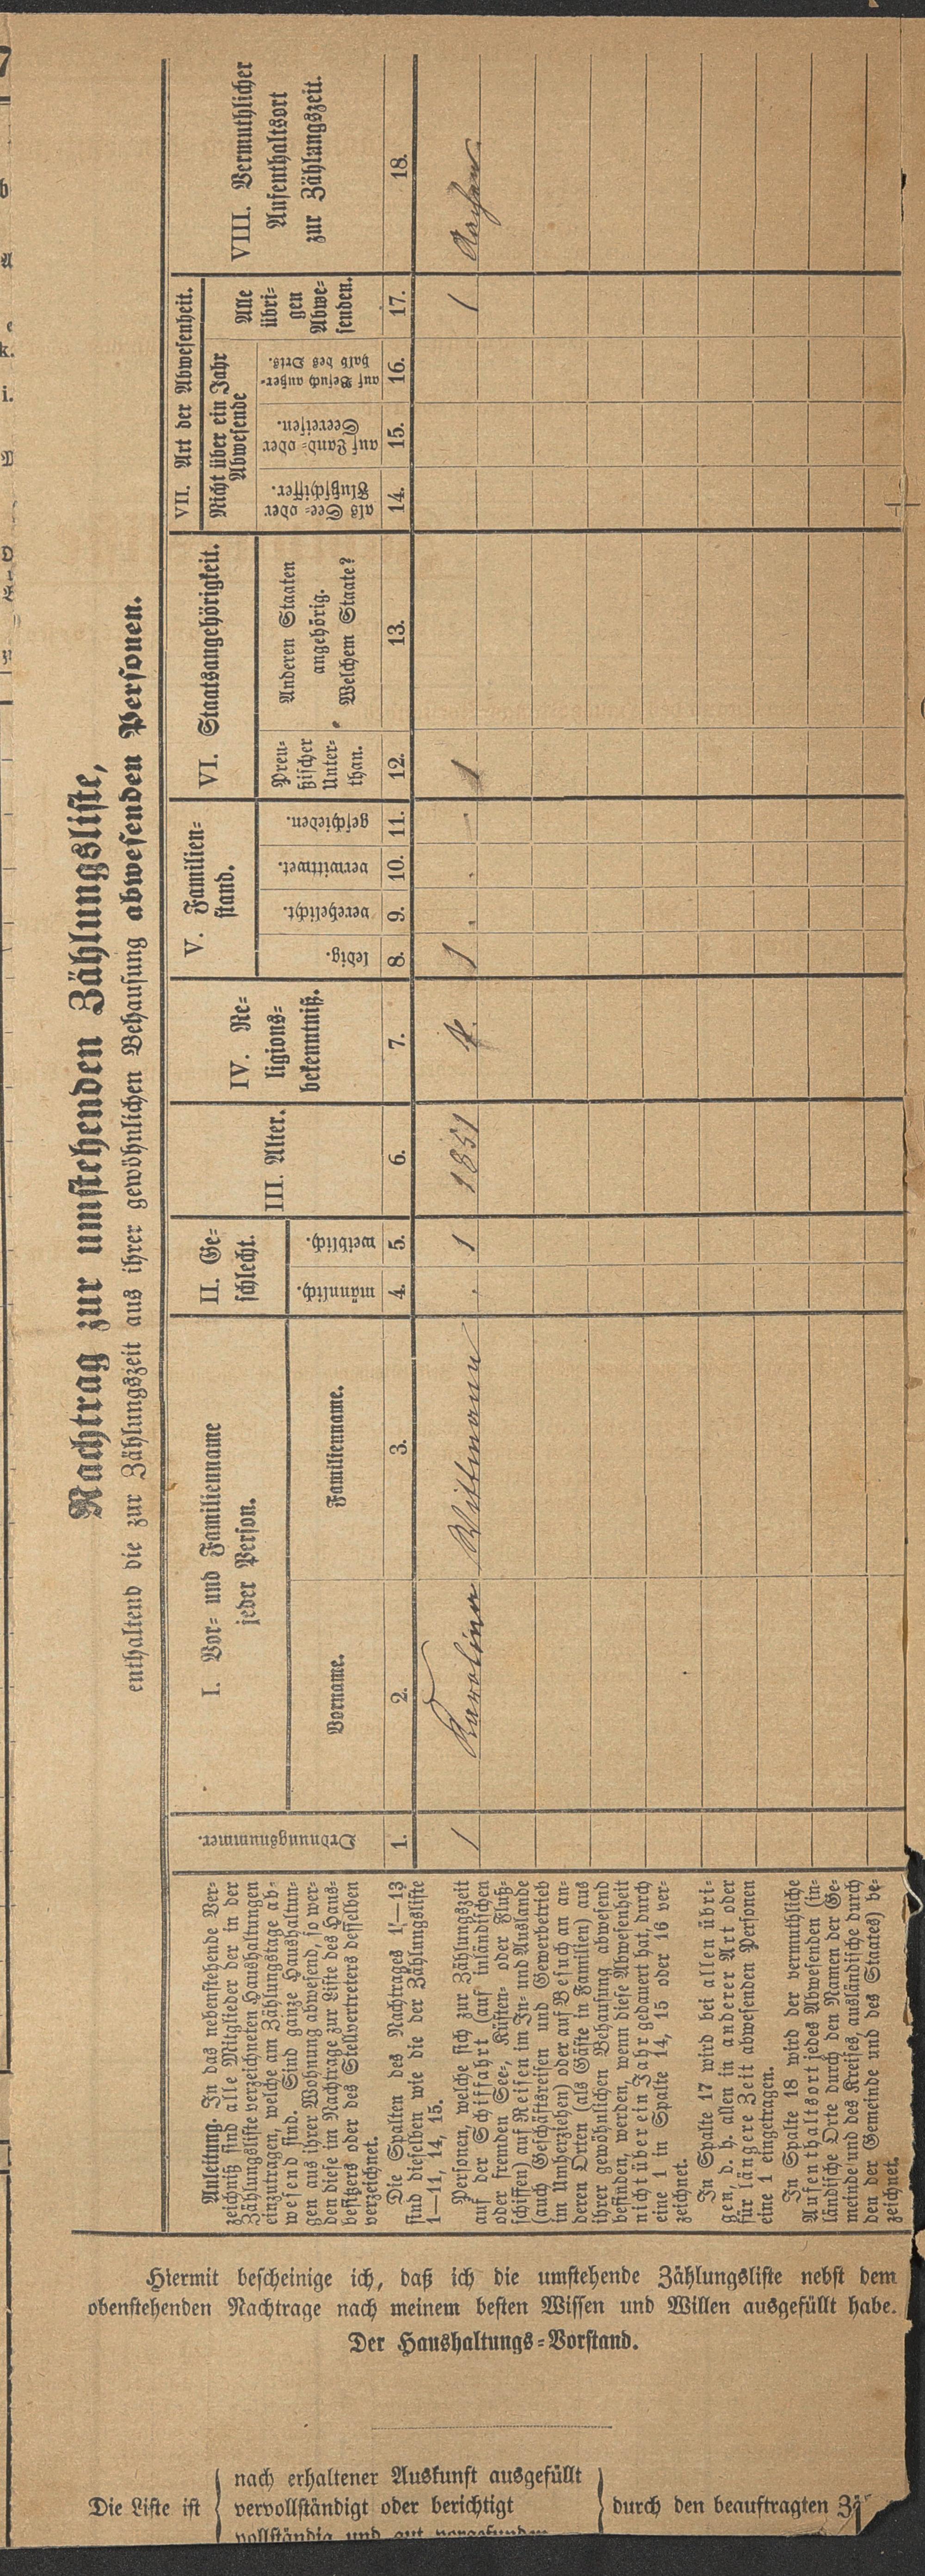 Nachtrag zur umstehenden Zählungsliste,
enthaltend die zur Zählungszeit aus ihrer gewöhnlichen Behausung abwesenden Personen.
Anleitung. In das nebenstehende Ver-
zeichniß sind alle Mitglieder der in der
Zählungsliste verzeichneten Haushaltungen
einzutragen, welche am Zählungstage ab-
wesend sind. Sind ganze Haushaltun-
gen aus ihrer Wohnung abwesend, so wer-
den diese im Nachtrage zur Liste des Haus-
besitzers oder des Stellvertreters desselben
verzeichnet.
Die Spalten des Nachtrages 1—13
sind dieselben wie die der Zählungsliste
1—11, 14, 15.
Personen, welche sich zur Zählungszeit
auf der Schiffahrt (auf inländischen
oder fremden See-, Küsten- oder Fluß-
schiffen) auf Reisen im In- und Auslande
(auch Geschäftsreisen und Gewerbetrieb
im Umherziehen) oder auf Besuch an an-
deren Orten (als Gäste in Familien) aus
ihrer gewöhnlichen Behausung abwesend
befinden, werden, wenn diese Abwesenheit
nicht über ein Jahr gedauert hat, durch
eine 1 in Spalte 14, 15 oder 16 ver-
zeichnet.
In Spalte 17 wird bei allen übri-
gen, d. h. allen in anderer Art oder
für längere Zeit abwesenden Personen
eine 1 eingetragen.
In Spalte 18 wird der vermuthliche
Aufenthaltsort jedes Abwesenden (in-
ländische Orte durch den Namen der Ge-
meinde und des Kreises, ausländische durch
den der Gemeinde und des Staates) be-
zeichnet.
Ordnungsnummer.
I. Vor- und Familienname
jeder Person.
Vorname.
Familienname.
II. Ge-
schlecht.
männlich.
weiblich.
III. Alter.
IV. Re-
ligions-
bekenntniß.
V. Familien-
stand.
ledig.
verehelicht.
verwittwet.
geschieden.
VI. Staatsangehörigkeit.
Preu-
ßischer
Unter-
than.
Anderen Staaten
angehörig.
Welchem Staate?
VII. Art der Abwesenheit.
Nicht über ein Jahr
Abwesende
als See- oder
Flußschiffer.
auf Land- oder
Seereisen.
auf Besuch außer-
halb des Orts.
Alle
übri-
gen
Abwe-
senden.
VIII. Vermuthlicher
Aufenthaltsort
zur Zählungszeit.
1. 2. 3. 4. 5. 6. 7. 8. 9. 10. 11. 12. 13. 14. 15. 16. 17. 18.
1 Karolina Wittmann . 1 1851 k. 1 . . . 1 1 Aachen
Hiermit bescheinige ich, daß ich die umstehende Zählungsliste nebst dem
obenstehenden Nachtrage nach meinem besten Wissen und Willen ausgefüllt habe.
Der Haushaltungs-Vorstand.
Die Liste ist
nach erhaltener Auskunft ausgefüllt
vervollständigt oder berichtigt
vollständig und gut vorgefunden
durch den beauftragten